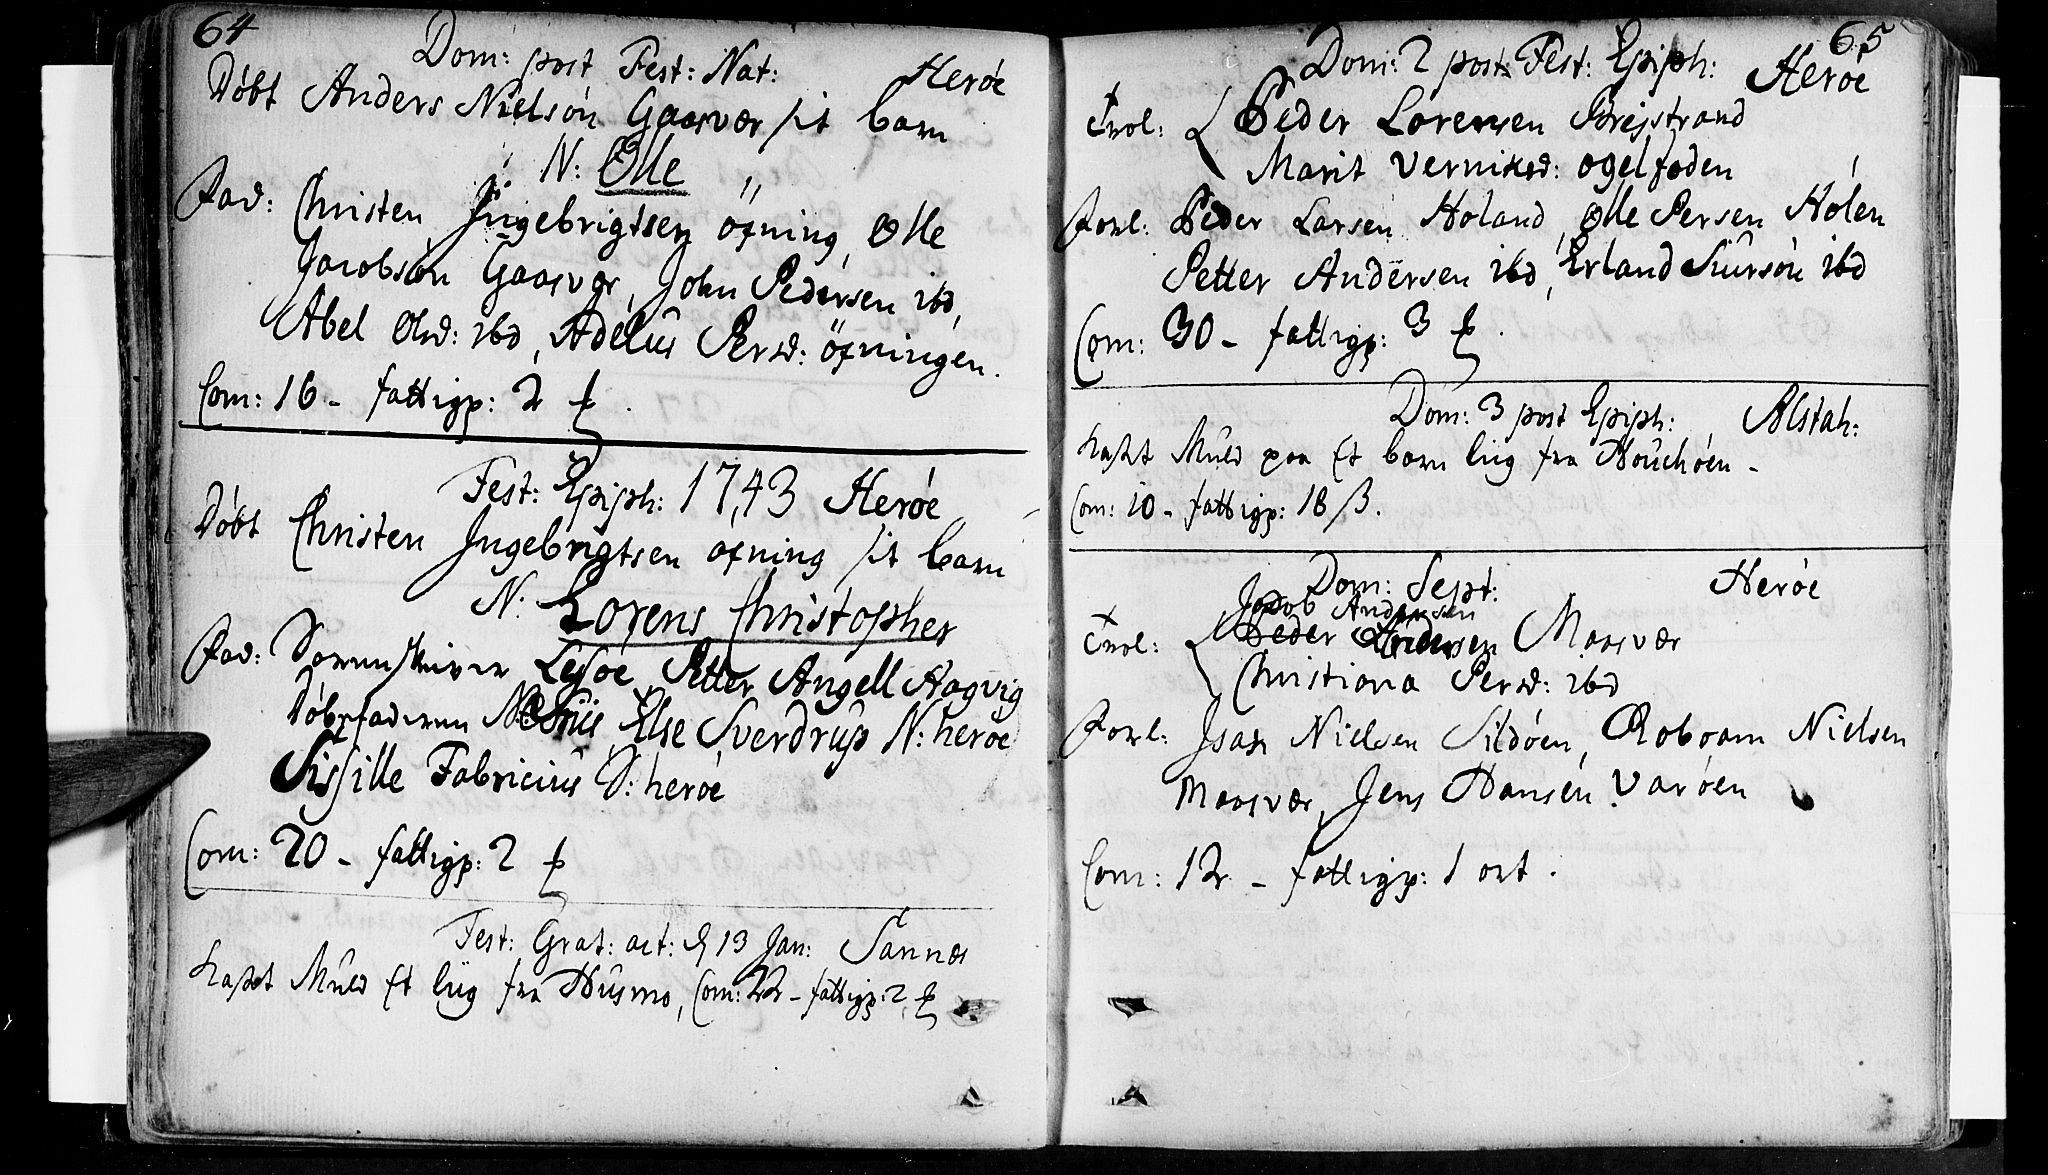 64
Dom: post Fest: Nat: Herøe
Døbt Anders Nielsøn Gaasvær sit barn
N: Olle
Fad: Christen Jngebrigtsen öfning, Olle
Jacobsøn Gaasvær, John Pedersen ibd,
Abel Olsd: ibd, Adelus Persd: öfningen.
Com: 16 - fattigp: 2
Fest: Epiph: 1743 Herøe
Døbt Christen Jngebrigtsen ofning sit barn
N: Lorens Christopher
Fad: Sorenskriver Lesøe, Petter Angell Aagvig
Else Sverdrup N: herøe
Sissille Fabricius S: herøe
Com: 20 - fattigp: 2
Fest: Grat: act: d 13 Jan: Sannæs
kast Muld Et liig fra Husmo, Com: 22 - fattigp: 2
65
Dom: 2 post Fest: Epiph: Herøe
Trol: Peder Lorensen Breistrand
Marit Vernisd: ogelfoden
Forl: Peder Larsen Holand, Olle Persen Holen
Petter Andersen ibd, Erland Siursøn ibd
Com: 30 - fattigp: 3
Dom: 3 post Epiph: Alstah:
kast Muld paa Et barn liig fra
Com: 10 - fattigp: 18 ß.
Dom: Sept: Herøe
Jacob Andersen
Trol: Peder Andersen Maasvær
Christiana Persd: ibd
Forl: Jsax Nielsen Sildøen, Roboam Nielsen
Maasvær, Jens Hansen Varøen
Com: 12 - fattigp: 1 ort.